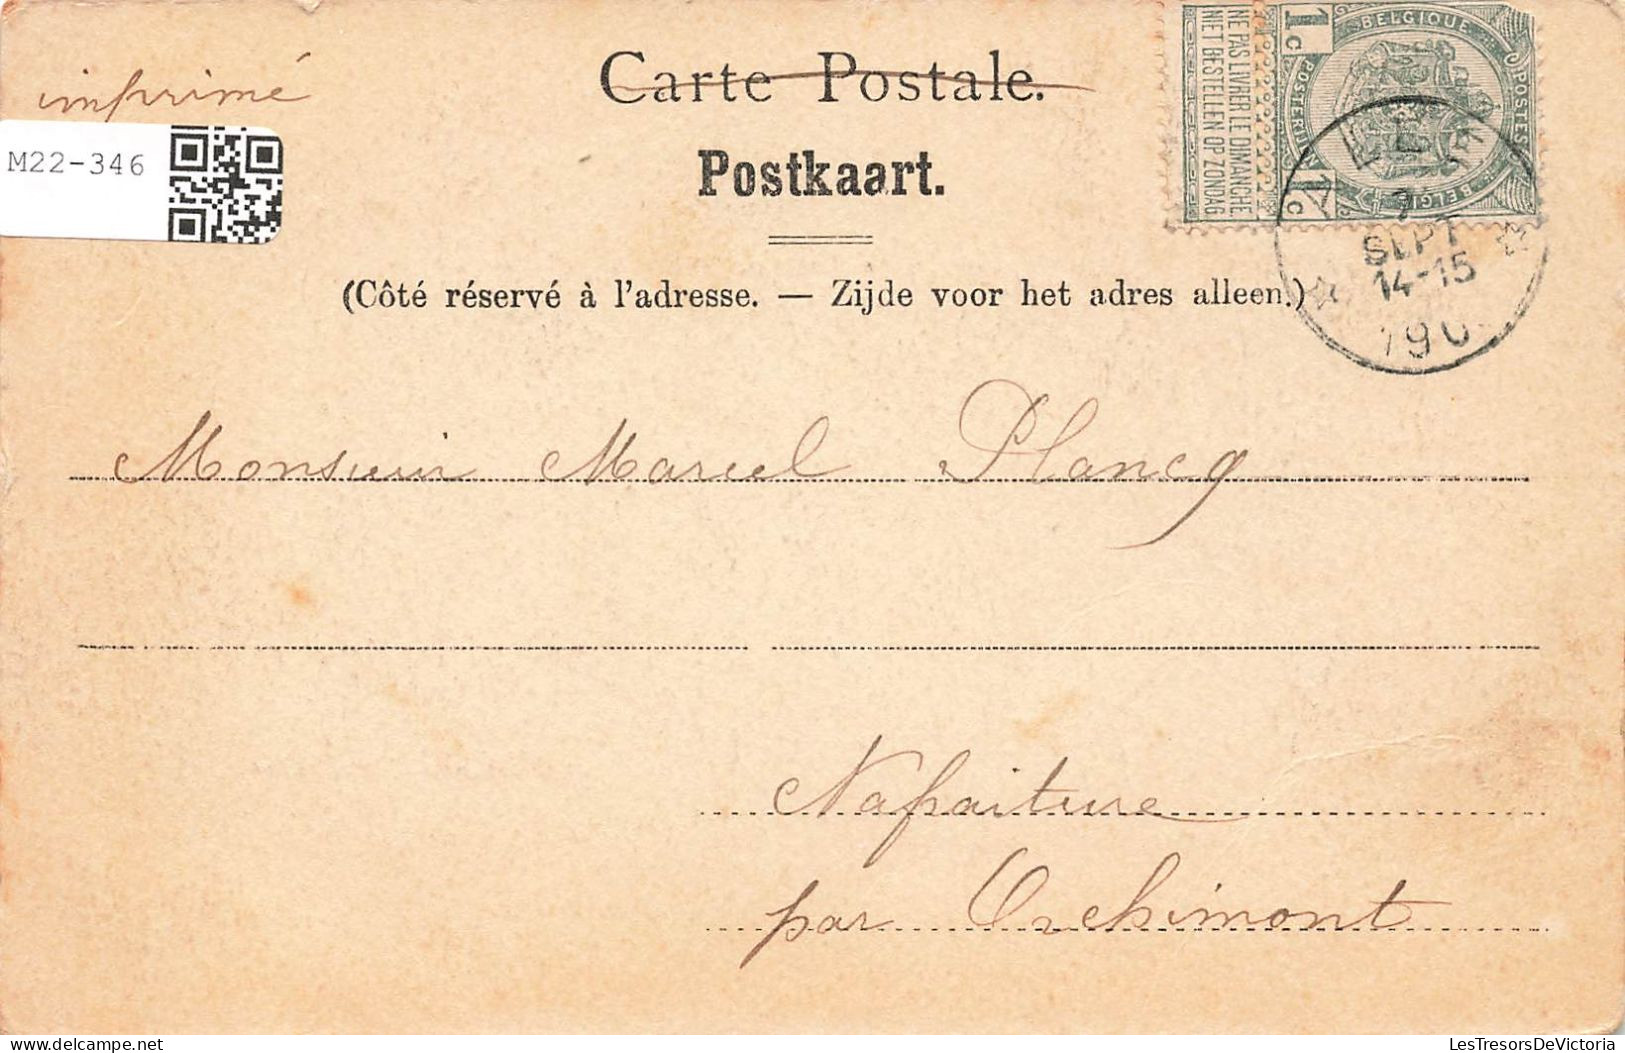 imprimé
Carte Postale.
Postkaart.
(Côté réservé à l'adresse. — Zijde voor het adres alleen.)
M22-346
NE PAS LIVRER LE DIMANCHE
NIET BESTELLEN OP ZONDAG
1c
BELGIQUE
POSTES
POSTERIJEN
BELGIË
1c
SEPT
14-15
190
Monsieur Marcel Plancq
Nafraiture
par Orchimont
LesTresorsDeVictoria